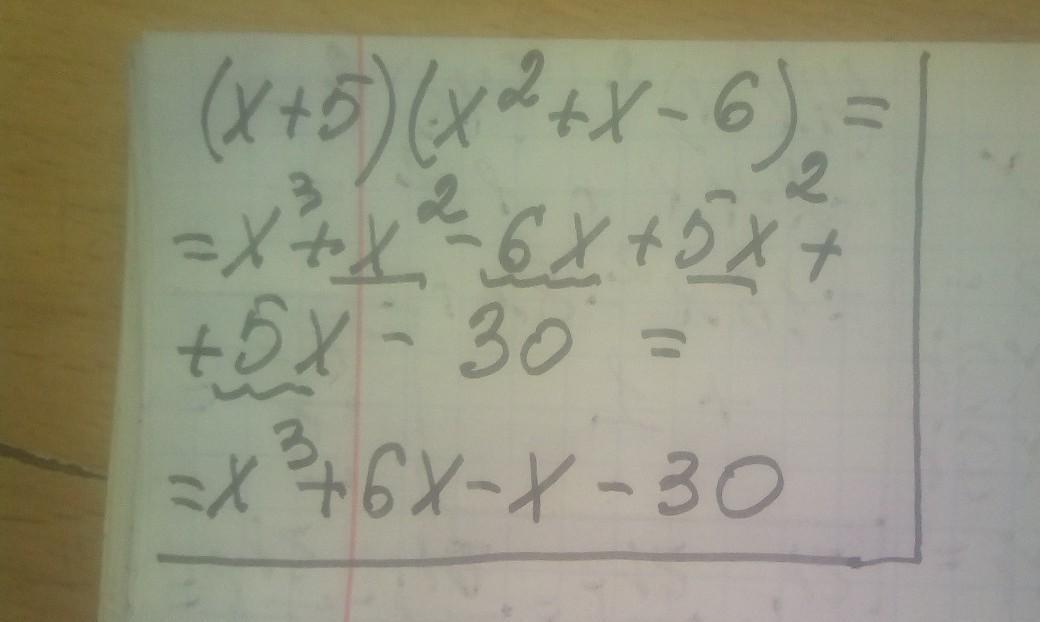 (x+5)(x²+x-6) =
=x³+x²-6x+5x²+
+5x-30 =
=x³+6x-x-30